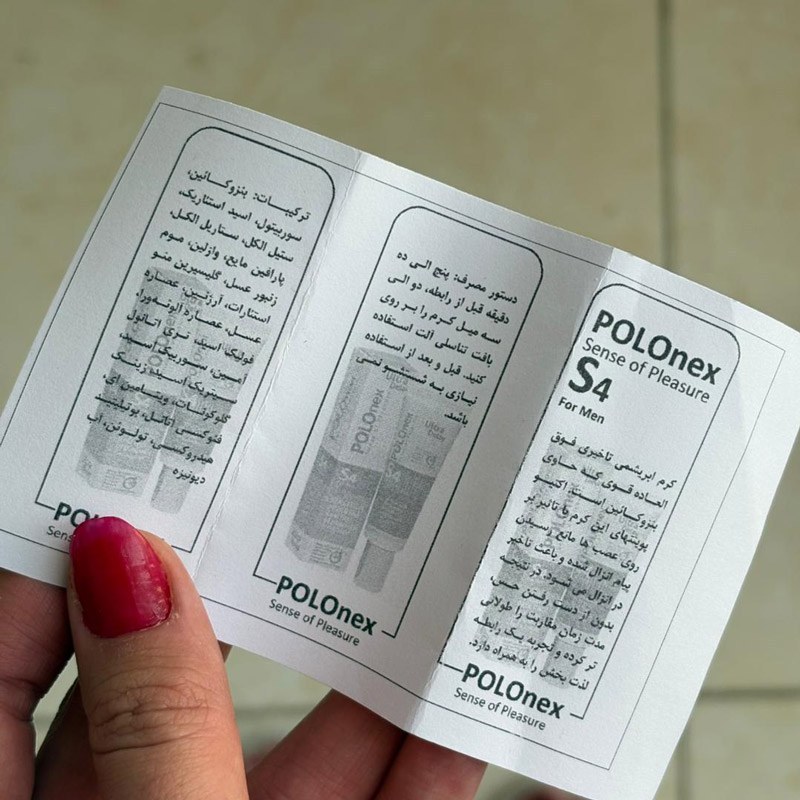 POLOnex
Sense of Pleasure
S4
For Men
کرم ابریشمی تاخیری فوق
العاده قوی که حاوی
بنزوکائین است. اکتیو
پوینتهای این کرم با تاثیر بر
روی عصب ها مانع رسیدن
پیام انزال شده و باعث تاخیر
در انزال می شود. در نتیجه
بدون از دست رفتن حس،
مدت زمان مقاربت را طولانی
تر کرده و تجربه یک رابطه
لذت بخش را به همراه دارد.
POLOnex
Sense of Pleasure
دستور مصرف: پنج الی ده
دقیقه قبل از رابطه، دو الی
سه میل کرم را بر روی
بافت تناسلی آلت استفاده
کنید. قبل و بعد از استفاده
نیازی به شستشو نمی
باشد.
POLOnex
S4
POLOnex
POLOnex
Sense of Pleasure
ترکیبات: بنزوکائین،
سوربیتول، اسید استئاریک،
ستیل الکل، ستاریل الکل
پارافین مایع، وازلین، موم
زنبور عسل، گلیسیرین منو
استئارات، آرژنین، عصاره
عسل، عصاره آلوئه‌ورا،
فولیک اسید، تری اتانول
آمین، سوربیک اسید
سیتریک اسید، زینک
گلوکونات، ویتامین ای،
فنوکسی اتانل، بوتیلیتد
هیدروکسی، تولوئن، آب
دیونیزه